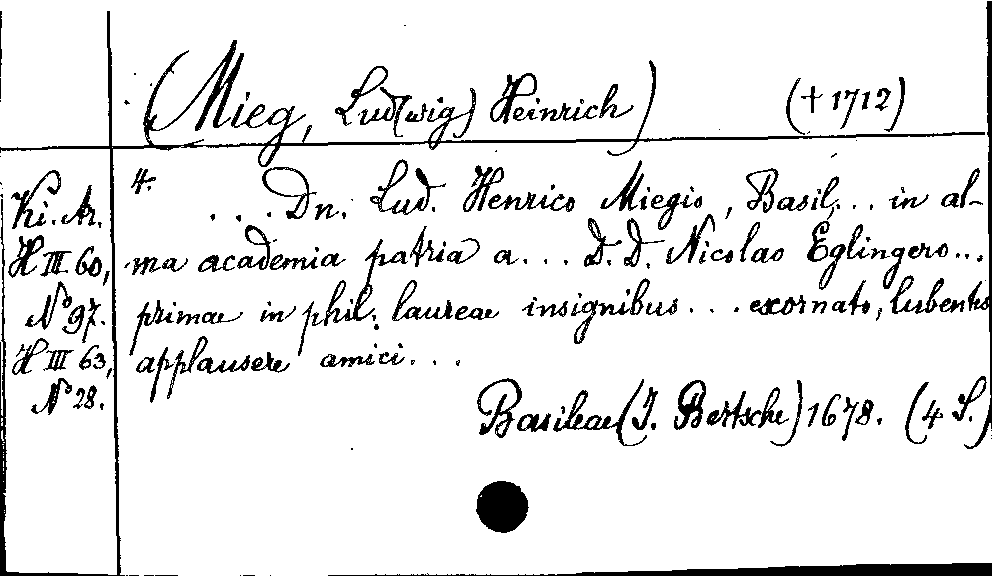 (Mieg, Lud(wig) Heinrich) († 1712)
Ki. Ar.
H III 60,
No 97.
H III 63,
No 28.
4.
... Dn. Lud. Henrico Miegio, Basil... in al-
ma academia patria a... D. D. Nicolao Eglingero...
primae in phil. laureae insignibus... exornato, lubentes
applausere amici...
Basileae (J. Bertsche) 1678. (4 S.)